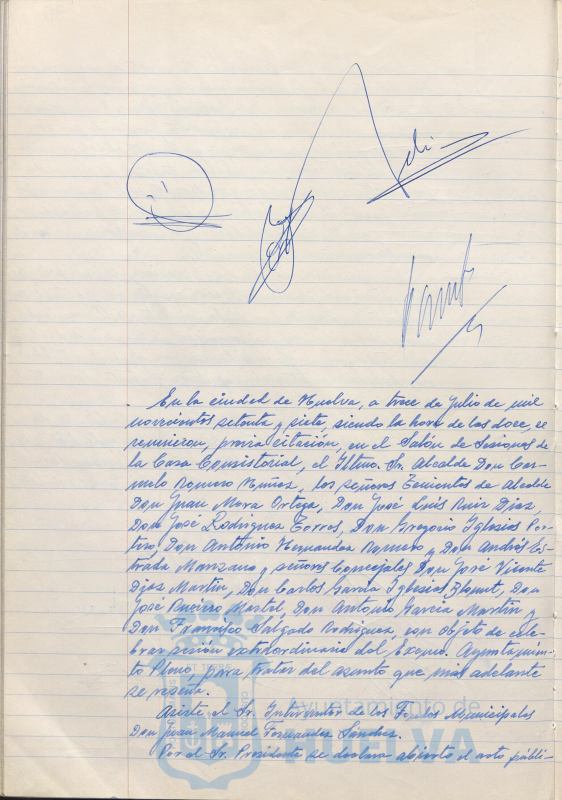 En la ciudad de Huelva, a trece de Julio de mil
novecientos setenta y siete, siendo la hora de las doce, se
reunieron, previa citación, en el Salón de Sesiones de
la Casa Consistorial, el Iltmo. Sr. Alcalde Don Car-
melo Romero Núñez, los señores Tenientes de Alcalde
Don Juan Mora Ortega, Don José Luis Ruiz Diaz,
Don José Rodriguez Torres, Don Gregorio Iglesias Por-
tiro, Don Antonio Hernandez Romero y Don Andrés Es-
trada Manzano y señores Concejales Don José Vicente
Diaz Martin, Don Carlos Garcia Iglesias Blanut, Don
José Martil, Don Antonio Garcia Martin y
Don Francisco Salgado Rodriguez, con objeto de cele-
brar sesión extraordinaria del Excmo. Ayuntamien-
to Pleno para tratar del asunto que más adelante
se reseña.
Asiste el Sr. Interventor de los Fondos Municipales
Don Juan Manuel Fernandez Sánchez.
Por el Sr. Presidente se declara abierto el acto públi-
Ayuntamiento de
HUELVA